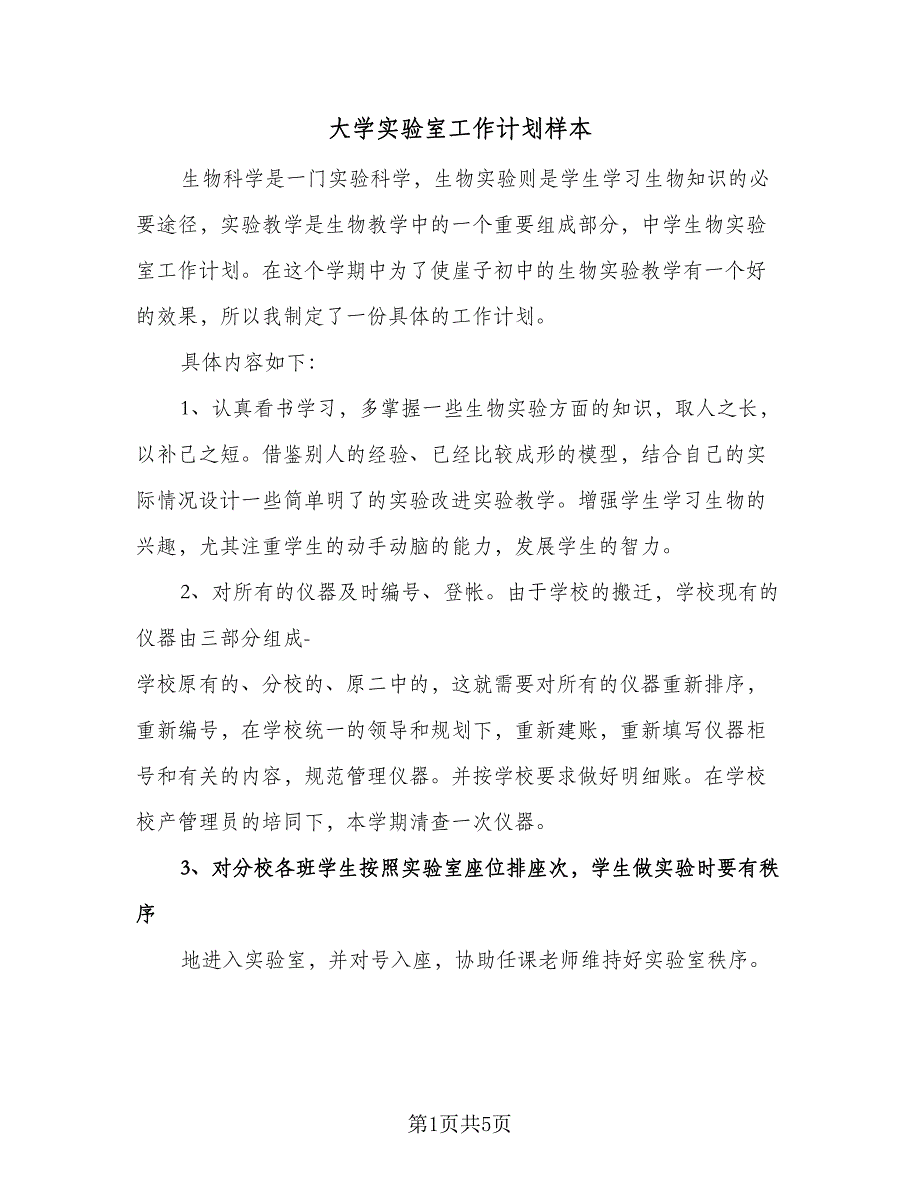 大学实验室工作计划样本
生物科学是一门实验科学，生物实验则是学生学习生物知识的必
要途径，实验教学是生物教学中的一个重要组成部分，中学生物实验
室工作计划。在这个学期中为了使崖子初中的生物实验教学有一个好
的效果，所以我制定了一份具体的工作计划。
具体内容如下：
1、认真看书学习，多掌握一些生物实验方面的知识，取人之长，
以补己之短。借鉴别人的经验、已经比较成形的模型，结合自己的实
际情况设计一些简单明了的实验改进实验教学。增强学生学习生物的
兴趣，尤其注重学生的动手动脑的能力，发展学生的智力。
2、对所有的仪器及时编号、登帐。由于学校的搬迁，学校现有的
仪器由三部分组成-
学校原有的、分校的、原二中的，这就需要对所有的仪器重新排序，
重新编号，在学校统一的领导和规划下，重新建账，重新填写仪器柜
号和有关的内容，规范管理仪器。并按学校要求做好明细账。在学校
校产管理员的培同下，本学期清查一次仪器。
3、对分校各班学生按照实验室座位排座次，学生做实验时要有秩
序
地进入实验室，并对号入座，协助任课老师维持好实验室秩序。
第1页共5页